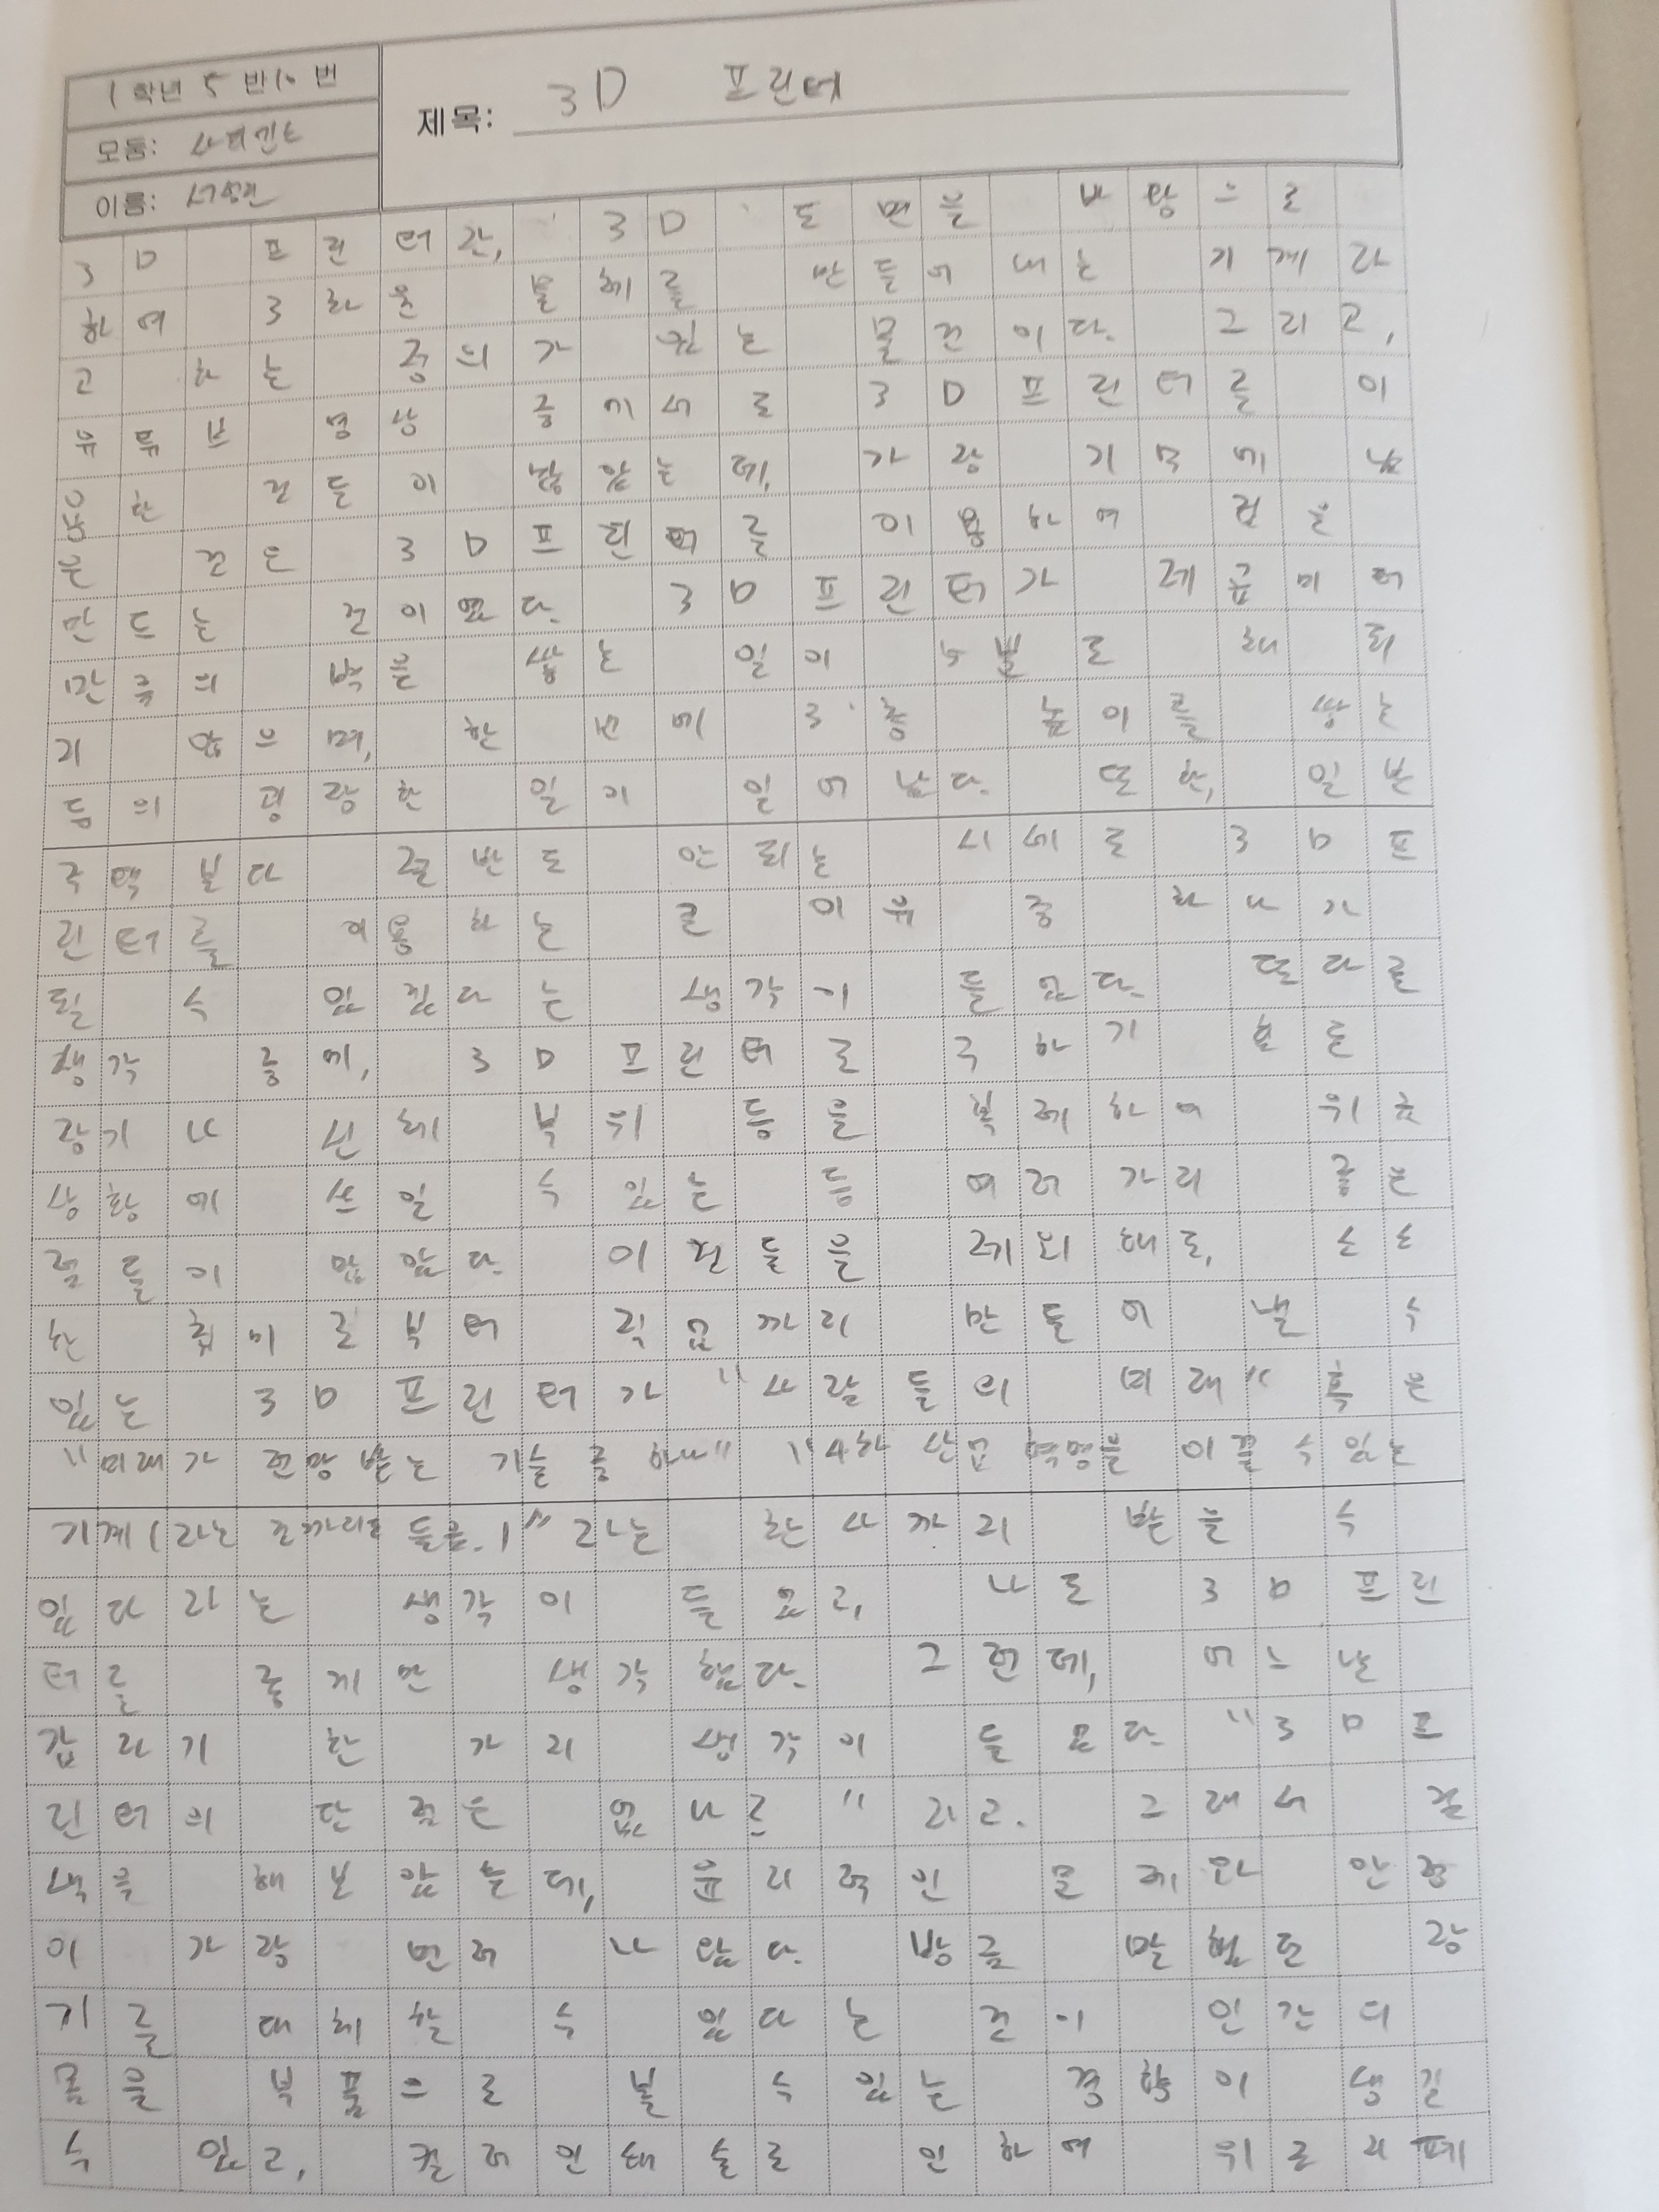 1학년 5반 10번
제목: 3D 프린터
모둠: 사피엔스
이름:
3D 프린터란, 3D 도면을 바탕으로
하여 3차원 물체를 만들어 내는 기계라
고 하는 정의가 있는 물건이다. 그리고,
유튜브 영상 중에서도 3D프린터를 이
용한 것들이 많았는데, 가장 기억에 남
은 것은 3D프린터를 이용하여 집을
만드는 것이였다. 3D프린터가 레고마냥
만족의 벽을 쌓는 일이 수분도 채 되
지 않으며, 한 번에 3층 높이를 쌓는
등의 굉장한 일이 일어난다. 또한, 일본
주택보다 절반도 안되는 시세도 3D프
린터를 허용하는 큰 이유 중 하나가
될 수 있겠다는 생각이 들었다. 또다른
생각 중에, 3D프린터로 구하기 힘든
장기나 신체 부위 등을 복제하여 위급
상황에 쓰일 수 있는 등 여러가지 좋은
점들이 많았다. 이것들을 제외해도, 소소
한 취미로부터 직업까지 만들어 낼 수
있는 3D프린터가 "사람들의 미래" 혹은
"미래가 전망받는 기술 중 하나" "4차 산업 혁명을 이끌 수 있는
기계(라는 들을.)"라는 찬사까지 받을 수
있다라는 생각이 들었고, 나도 3D프린
터를 좋게만 생각했다. 그런데, 어느날
갑자기 한 가지 생각이 들었다. "3D프
린터의 단점은 없나?"라고. 그래서 검
색을 해 보았는데, 윤리적인 문제와 안정
이 가장 먼저 나왔다. 방금 말했던 장
기를 대체할 수 있다는 것이 인간의
몸을 부품으로 볼 수 있는 경향이 생길
수 있고, 인하여 위조지폐